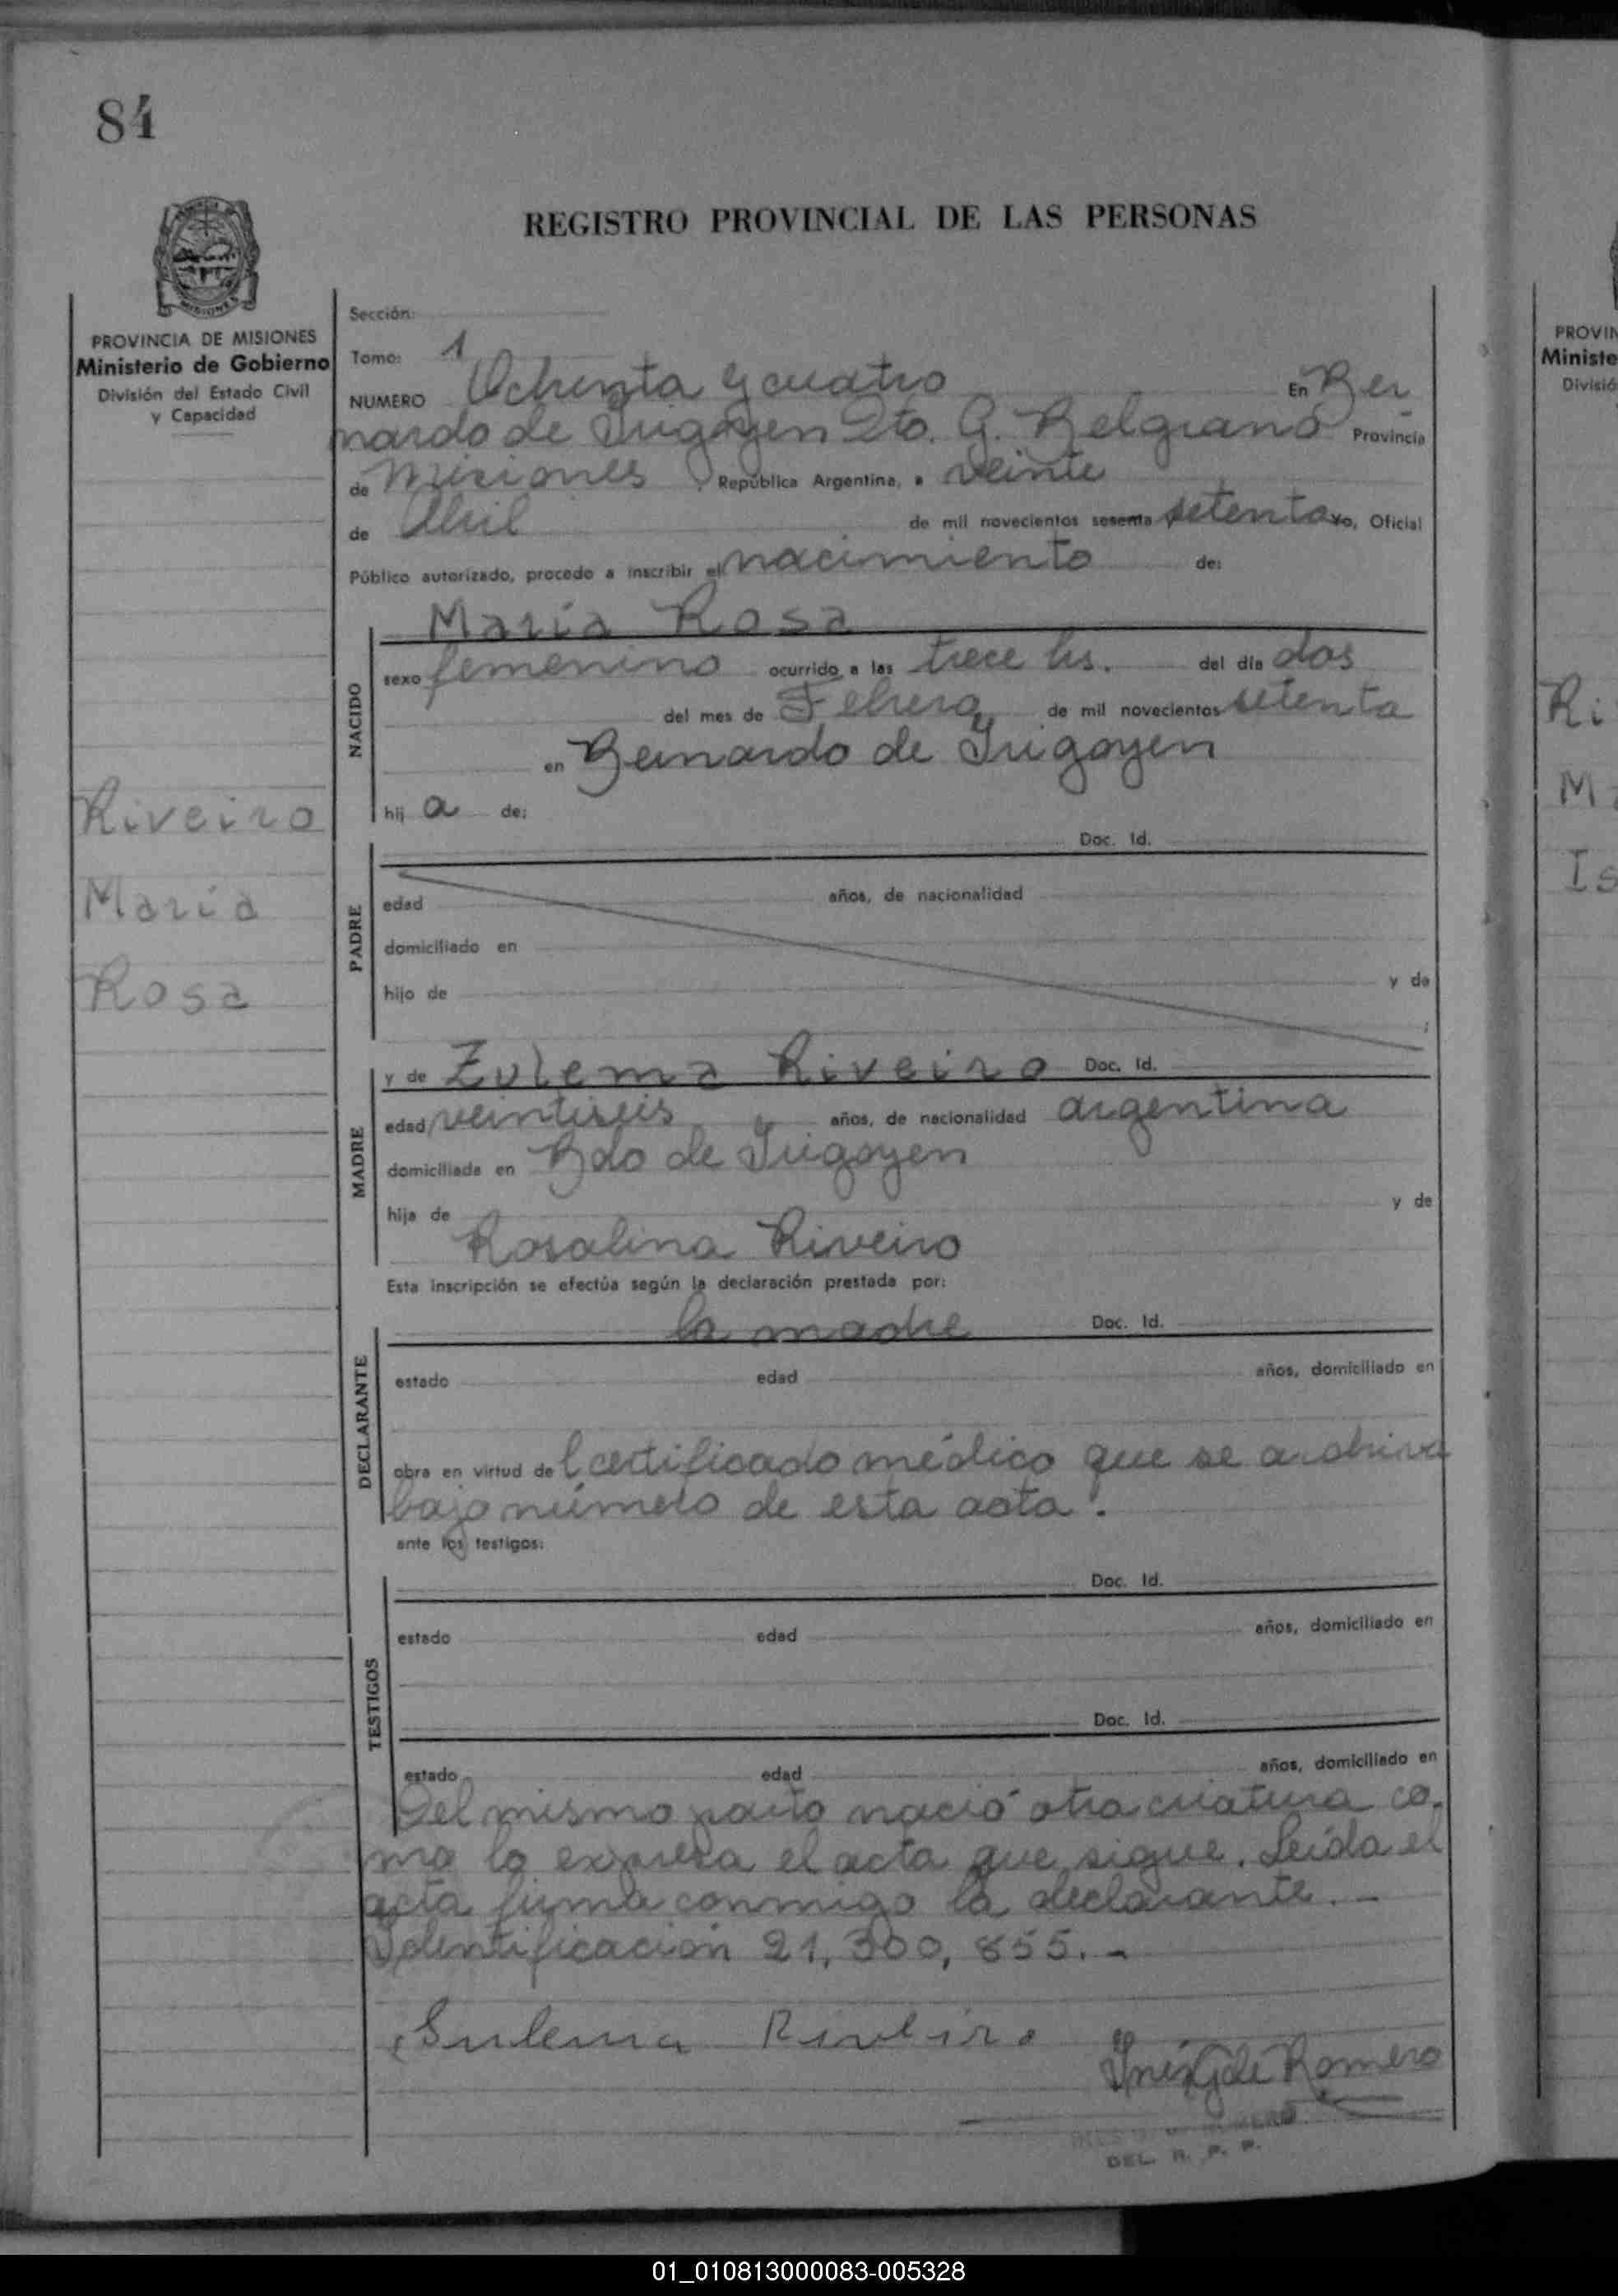 84
REGISTRO PROVINCIAL DE LAS PERSONAS
MISIONES
PROVINCIA DE MISIONES
Ministerio de Gobierno
División del Estado Civil
y Capacidad
Riveiro
María
Rosa
Sección:
Tomo: 1
NUMERO Ochenta y cuatro En Ber
nardo de Irigoyen Dto. G. Belgrano Provincia
de Misiones, República Argentina, a veinte
de Abril de mil novecientos sesenta setenta yo, Oficial
Público autorizado, procedo a inscribir el nacimiento de:
NACIDO
María Rosa
sexo femenino ocurrido a las trece hs. del día dos
del mes de Febrero de mil novecientos setenta
en Bernardo de Irigoyen
hij a de:
PADRE
Doc. Id.
edad años, de nacionalidad
domiciliado en
hijo de y de
;
MADRE
y de Zulema Riveiro Doc. Id.
edad veintiseis años, de nacionalidad argentina
domiciliada en Bdo de Irigoyen
hija de y de
Rosalina Riveiro
Esta inscripción se efectúa según la declaración prestada por:
DECLARANTE
la madre Doc. Id.
estado edad años, domiciliado en
obra en virtud de l certificado médico que se archiva
bajo número de esta acta.
ante los testigos:
TESTIGOS
Doc. Id.
estado edad años, domiciliado en
Doc. Id.
estado edad años, domiciliado en
Del mismo parto nació otra criatura co-
mo lo expresa el acta que sigue. Leída el
acta firma conmigo la declarante. -
Identificación 21,300,855. -
Sulema Riveiro
Inés G de Romero
DEL. R. P. P.
PROVIN
Ministe
Divisió
Ri
Ma
Is
01_010813000083-005328